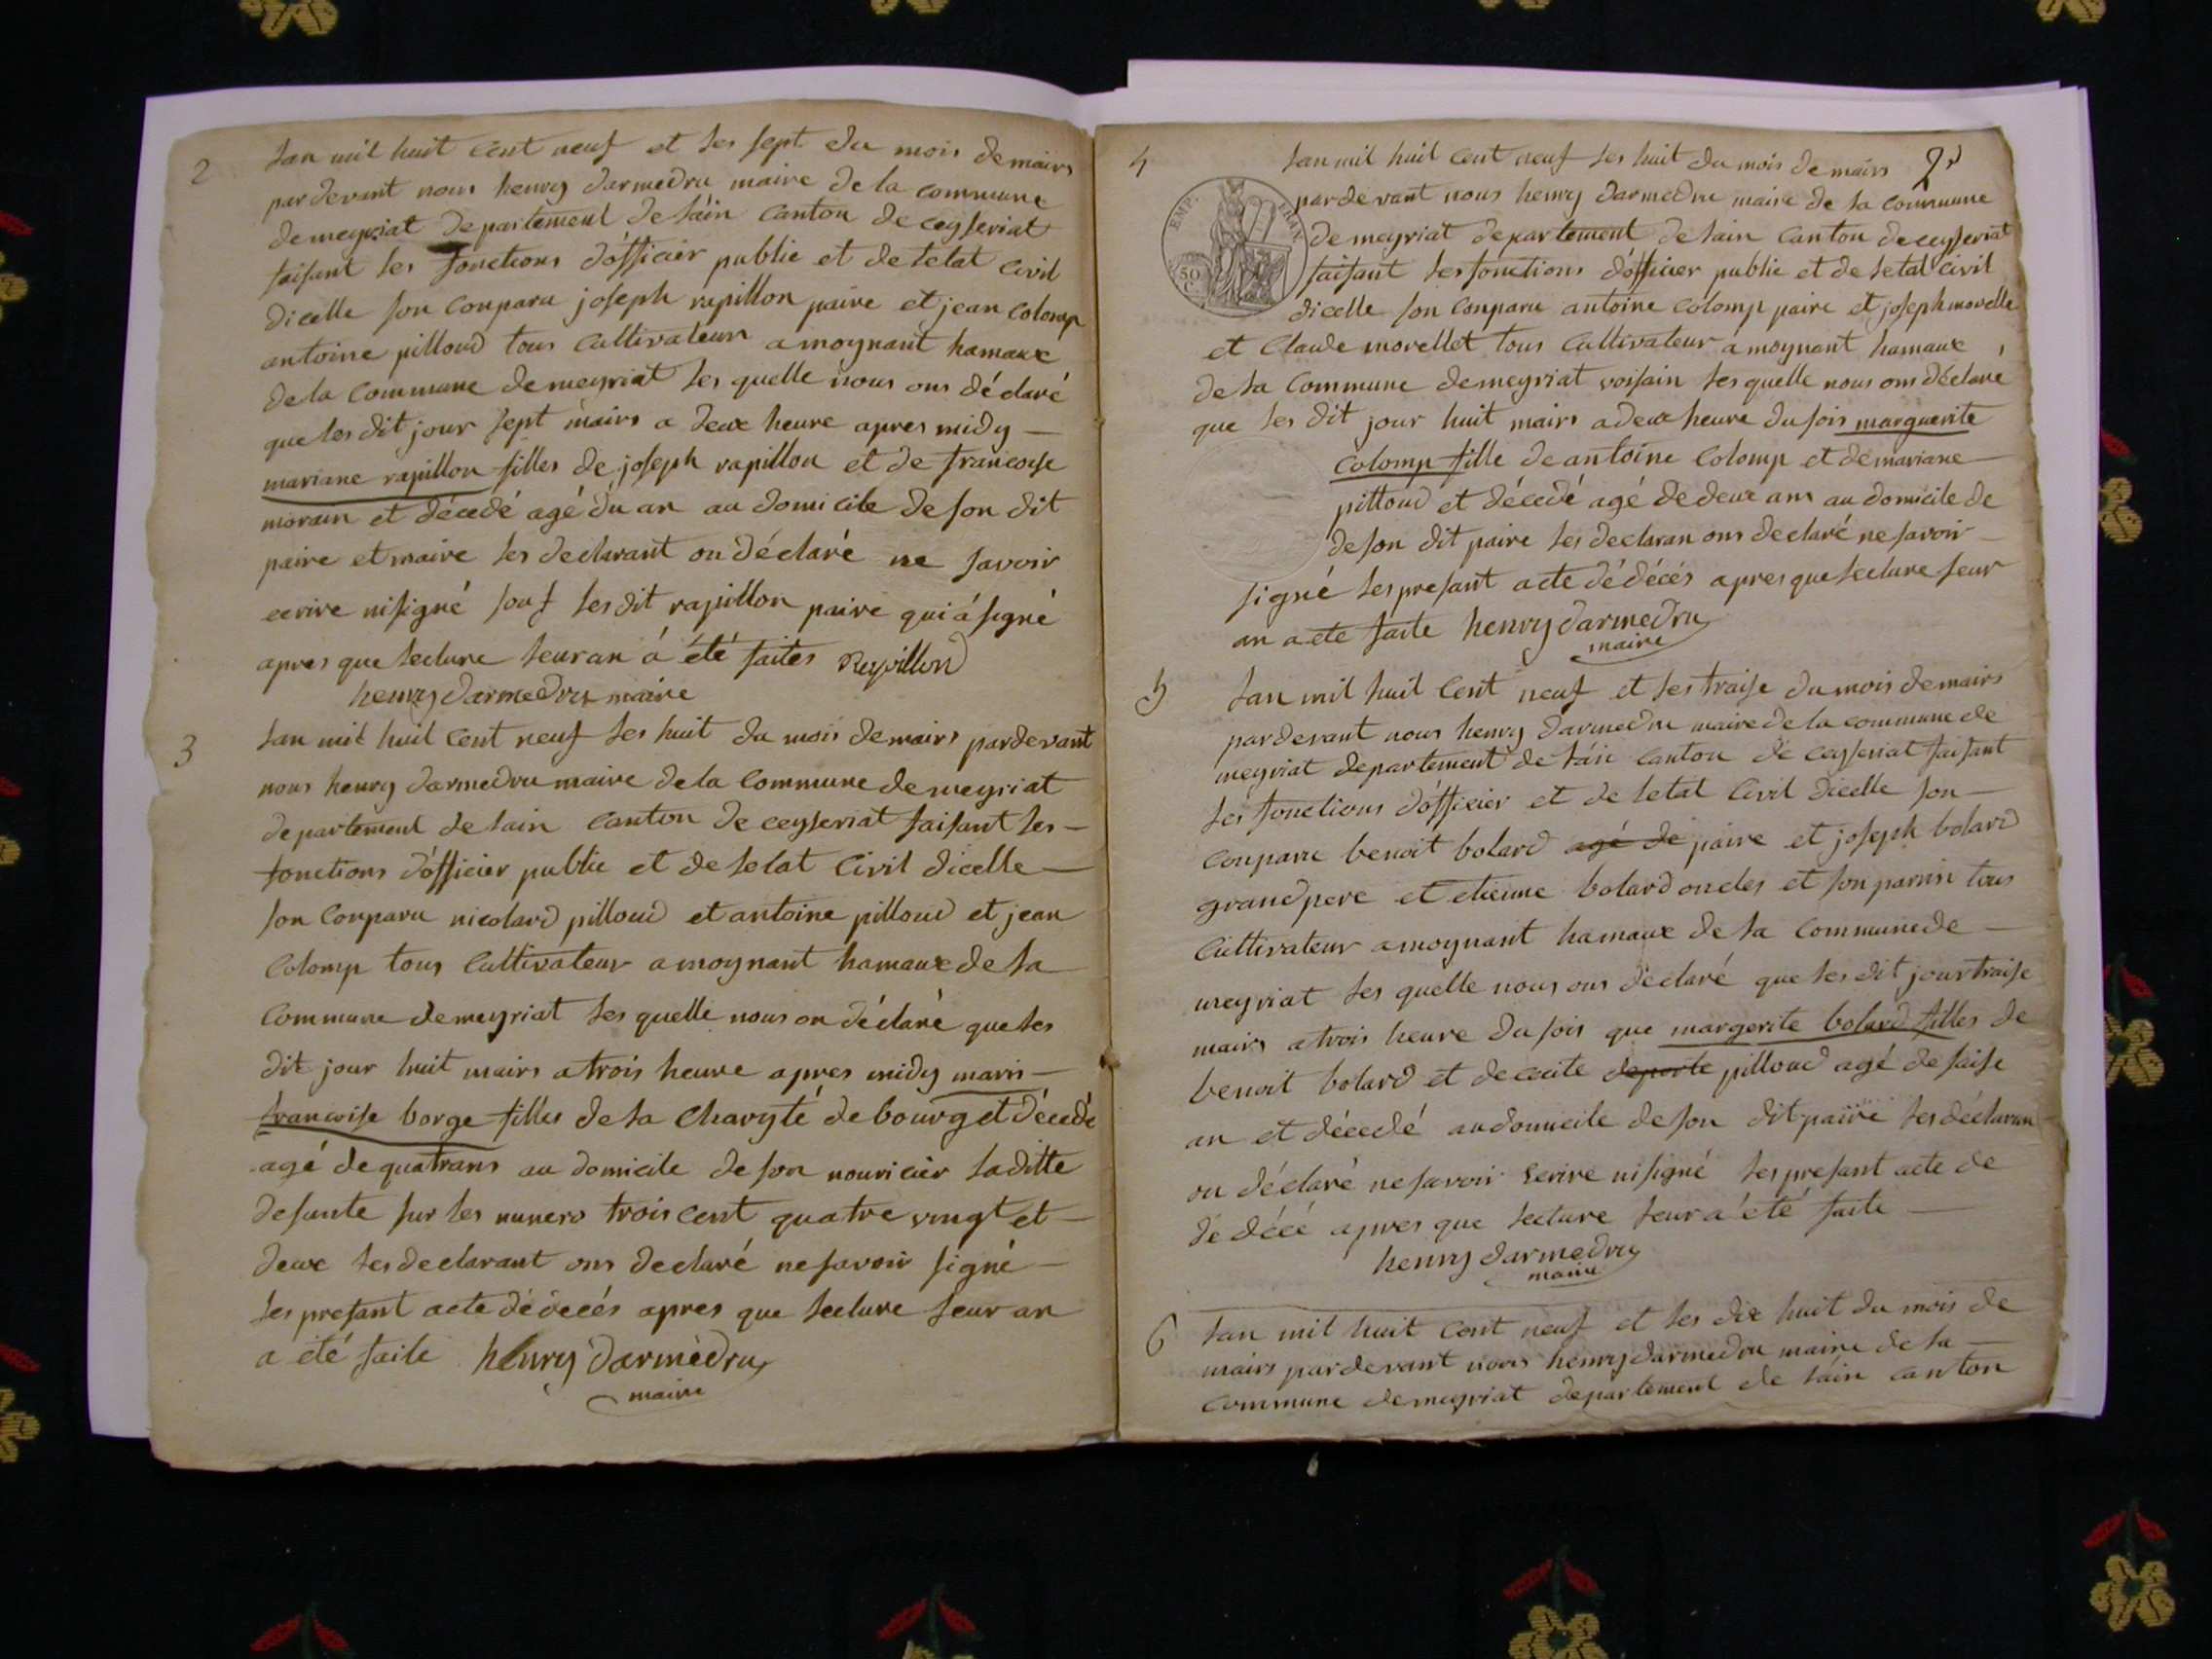 2
lan mil huit Cent neuf et les sept du mois de mairs
pardevant nous henry darmedru maire de la commune
de meyriat departement de láin Canton de ceyseriat
faisant les fonctions dófficier public et de letat Civil
dicelle son Conparu joseph rapillon paire et jean Colomp
antoine pilloud tous Cultivateur a moynant hamaux
de la Commune de meyriat les quelle nous ons déclaré
que les dit jour sept mairs a deux heure apres midy —
mariane rapillon filles de joseph rapillon et de francoise
morain et décedé agé du an au domicile de son dit
paire et maire les declarant on déclaré ne savoir
ecrire nisigné souf les dit rapillon paire qui á signé
apres que lecture leur an á été faites Rapillon
henry darmedru maire
3
lan mil huit Cent neuf les huit du mois de mairs pardevant
nous henry darmedru maire de la Commune de meyriat
departement de lain Canton de ceyseriat faisant les —
fonctions dófficier public et de letat Civil dicelle —
son Conparu nicolard pilloud et antoine pilloud et jean
Colomp tous Cultivateur a moynant hamaux de la
Commune de meyriat les quelle nous on déclaré que les
dit jour huit mairs a trois heure apres midy marri —
francoise borge filles de la Charyté de bourg et décedé
agé de quatrans au domicile de son nouricier la ditte
defunte sur les numero trois Cent quatre vingt et —
deux les declarant ons declaré ne savoir signé —
les presant acte dédecés apres que lecture leur an
a été faite henry darmedru
maire
4
2d
lan mil huit Cent neuf les huit du mois de mairs
EMP. FRAN
50 C
pardevant nous henry darmedru maire de la Commune
de meyriat departement de lain Canton de ceyseriat
faisant les fonctions dófficier public et de letat Civil
dicelle son Conparu antoine Colomp paire et joseph morelle
et Claude morellet tous Cultivateur á moynant hamaux
de la Commune de meyriat voisain les quelle nous ons déclaré
que les dit jour huit mairs a deux heure du soir marguerite
Colomp fille de antoine Colomp et de mariane —
pilloud et décedé agé de deux ans au domicile de
de son dit paire les declaran ons declaré ne savoir —
signé les presant acte dédécés apres que lecture leur
an a ete faite henry darmedru
maire
5
lan mil huit Cent neuf et les traise du mois de mairs
pardevant nous henry darmedru maire de la commune de
meyriat departement de láin canton de ceyseriat faisant
les fonctions dófficier et de letat Civil dicelle son —
Conparu benoit bolard agé de paire et joseph bolard
grand pere et etienne bolard oncles et son parin tous
Cultivateur a moynant hamaux de la Commune de —
meyriat les quelle nous ons déclaré que les dit jour traise
mairs a trois heure du soir que margerite bolard filles de
benoit bolard et de pilloud agé de saise
an et décedé au domicile de son dit paire les déclaran
on déclaré ne savoir Ecrire nisigné les presant acte de
dé décé apres que lecture leur a été faite —
henry darmedru
maire
6
lan mil huit Cent neuf et les dix huit du mois de
mairs pardevant nous henry darmedru maire de la —
Commune de meyriat departement de láin canton